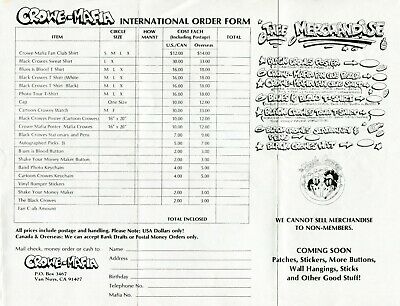 CROWE-MAFIA INTERNATIONAL ORDER FORM
ITEM CIRCLE SIZE HOW MANY? COST EACH (Including Postage) TOTAL
U.S./CAN Overseas
Crowe Mafia Fan Club Shirt S M L X $12.00 $14.00
Black Crowes Sweat Shirt L X 30.00 33.00
Blues is Blood T Shirt M L X 16.00 18.00
Black Crowes T Shirt (White) M L X 16.00 18.00
Black Crowes T Shirt (Black) M L X 16.00 18.00
Photo Tour T-Shirt M L X 16.00 18.00
Cap One Size 10.00 12.00
Cartoon Crowes Watch M F 30.00 33.00
Black Crowes Poster (Cartoon Crowes) 16" x 20" 10.00 12.00
Crowe Mafia Poster Male Crowes 16" x 20" 10.00 12.00
Black Crowes Stationary and Pens 7.00 9.00
Autographed Picks 5.00
Blues is Blood Button 2.00 3.00
Shake Your Money Maker Button 2.00 3.00
Band Photo Keychain 4.00 5.00
Cartoon Crowes Keychain 4.00 5.00
Vinyl Bumper Stickers
Shake Your Money Maker 2.00 3.00
The Black Crowes 2.00 3.00
Fan Club Amount
TOTAL ENCLOSED
All prices include postage and handling. Please Note: USA Dollars only!
Canada & Overseas: We can accept Bank Drafts or Postal Money Orders only.
Mail check, money order or cash to
CROWE-MAFIA
P.O. Box 3467
Van Nuys, CA 91407
Name
Address
Birthday
Telephone No.
Mafia No.
FREE MERCHANDISE
WE CANNOT SELL MERCHANDISE
TO NON-MEMBERS.
COMING SOON
Patches, Stickers, More Buttons,
Wall Hangings, Sticks
and Other Good Stuff!